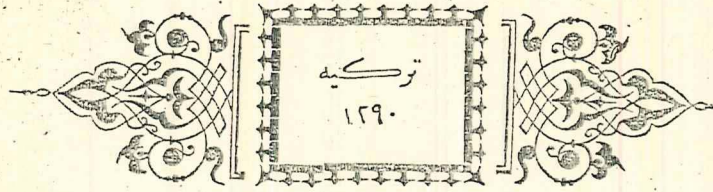 تركيه
١٢٩٠